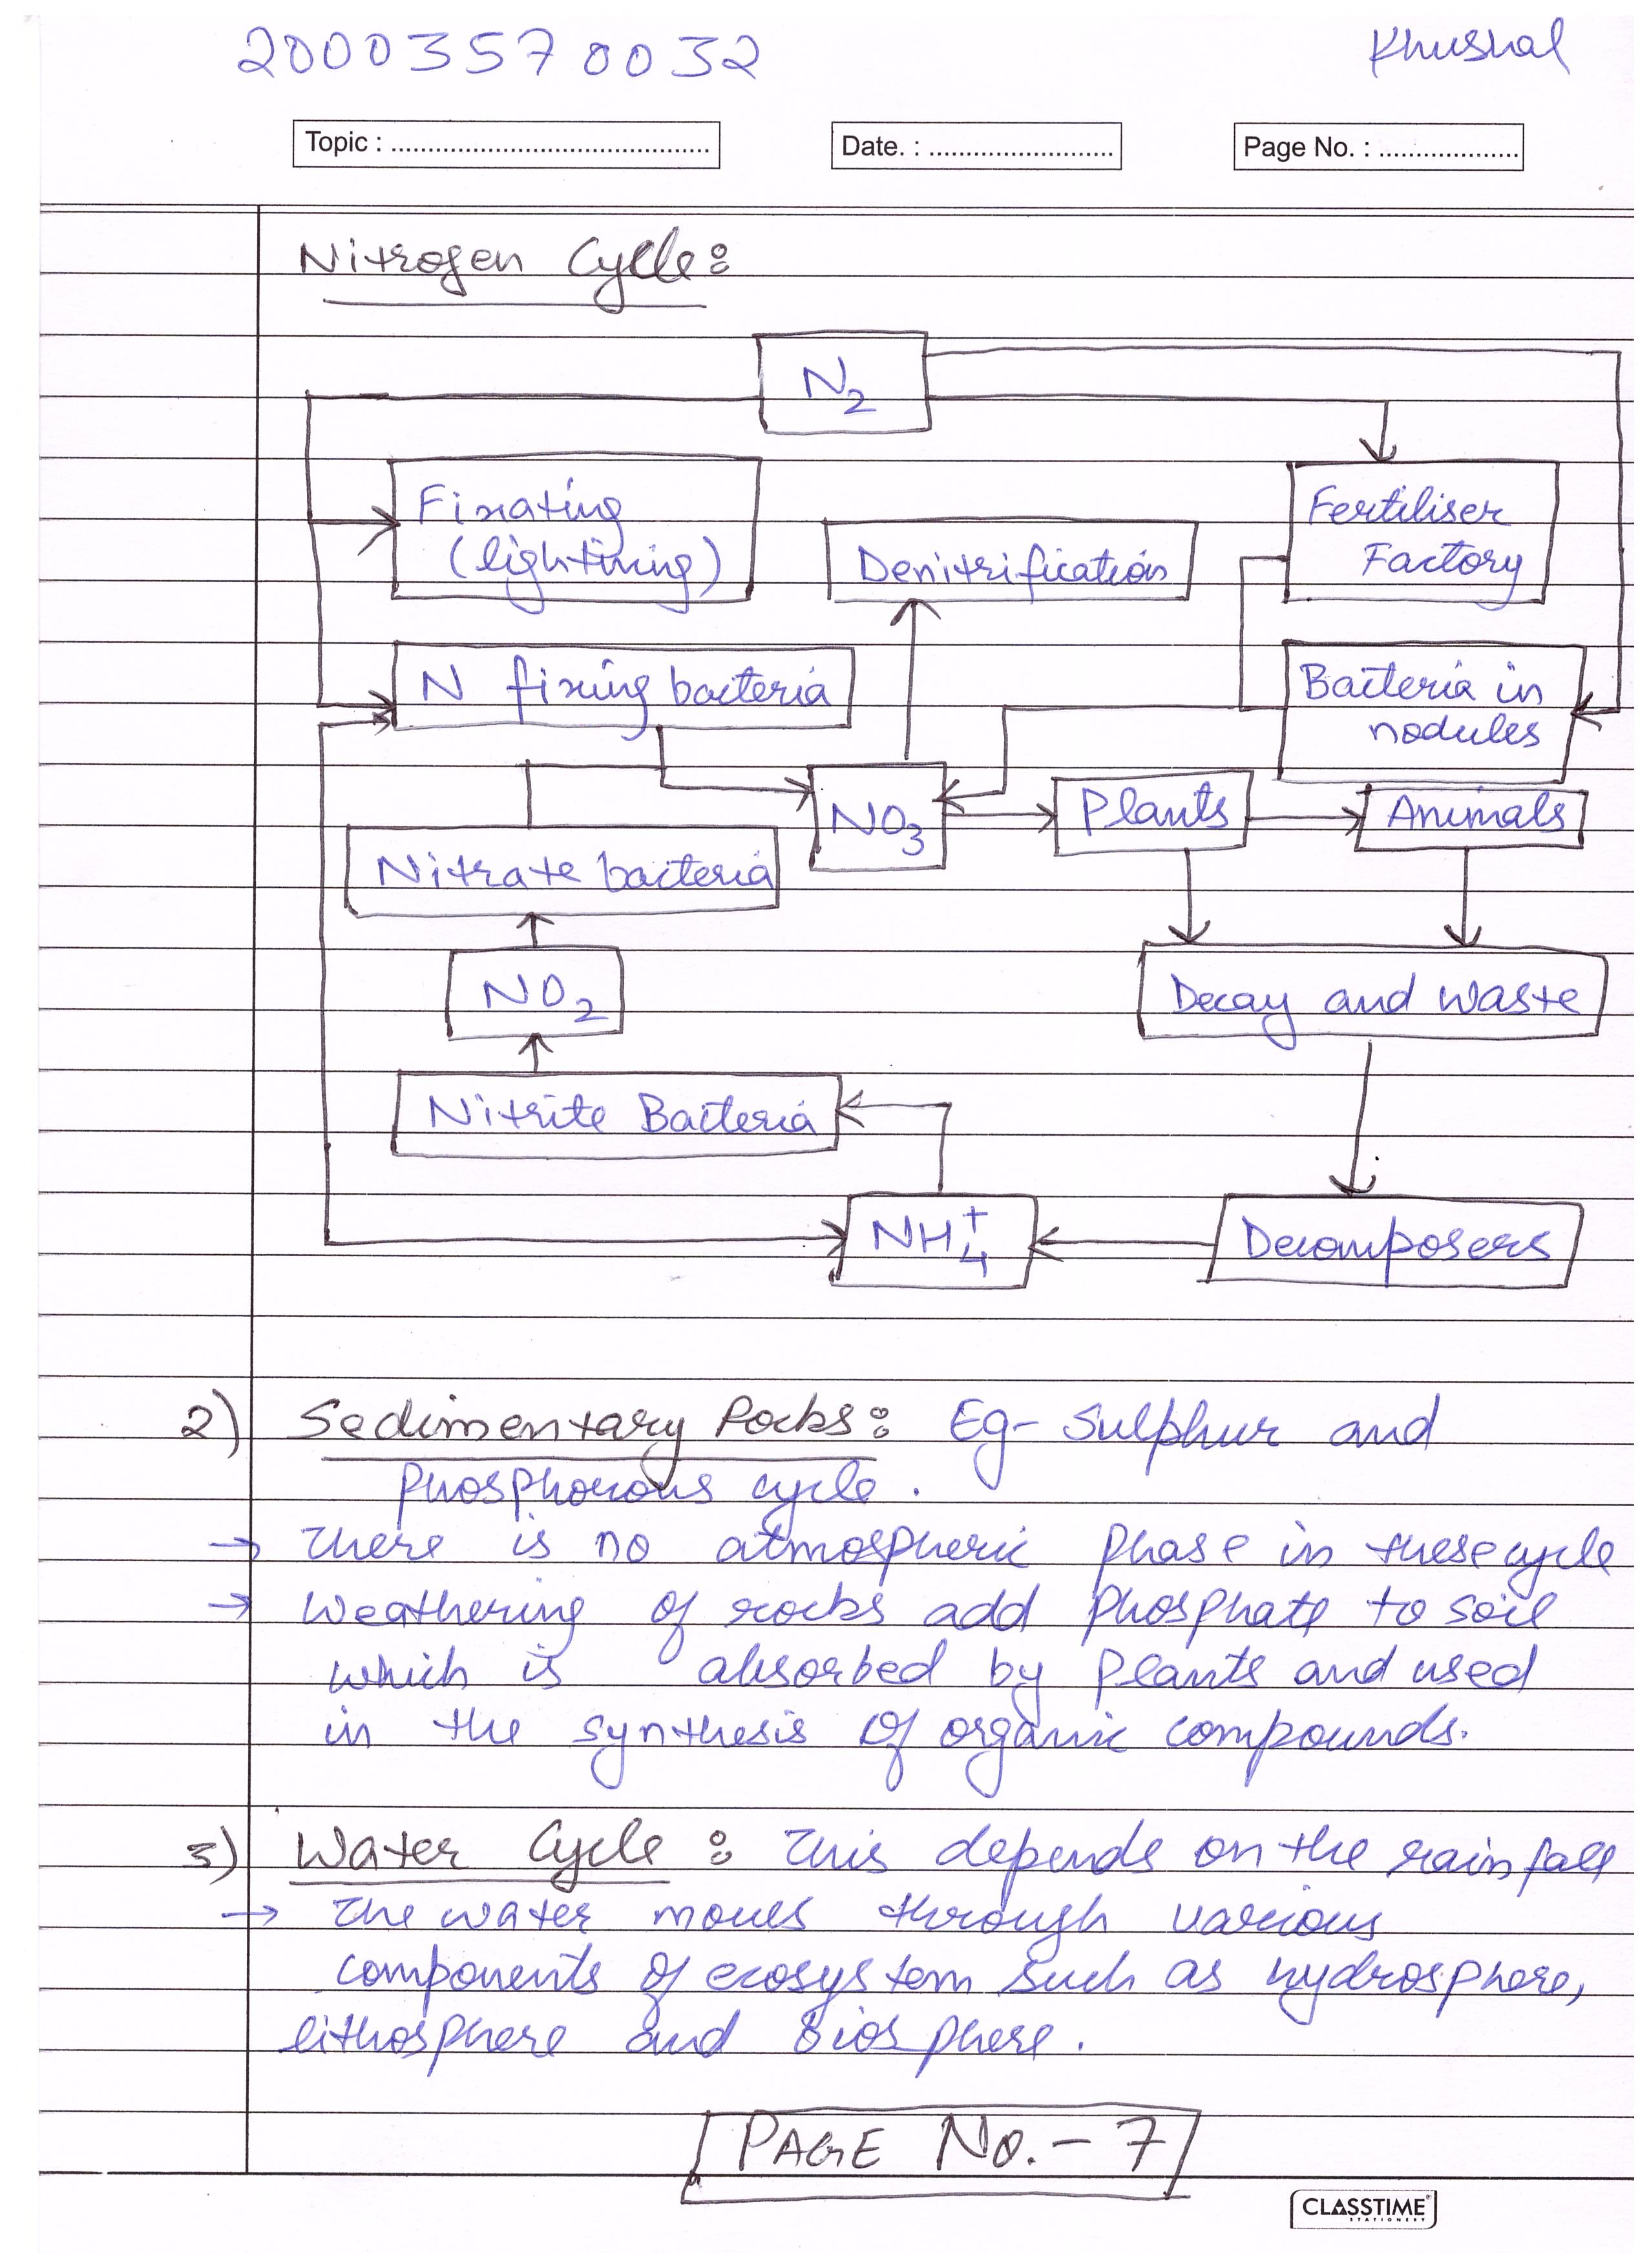 20003570032 Khushal
Topic : ........................................... Date. : ......................... Page No. : ...................
Nitrogen Cycle:
N2
Fixating
(lightining)
Denitrification
Fertiliser
Factory
N fixing bacteria
Bacteria in
nodules
NO3
Plants
Animals
Nitrate bacteria
NO2
Decay and waste
Nitrite Bacteria
NH4+
Decomposers
2) Sedimentary Rocks: Eg- Sulphur and
phosphorous cycle.
→ There is no atmospheric phase in these cycle
→ Weathering of rocks add phosphate to soil
which is absorbed by plants and used
in the synthesis of organic compounds.
3) Water Cycle : This depends on the rainfall
→ The water moves through various
components of ecosystem such as hydrosphere,
lithosphere and Biosphere.
PAGE No.- 7
CLASSTIME
STATIONERY